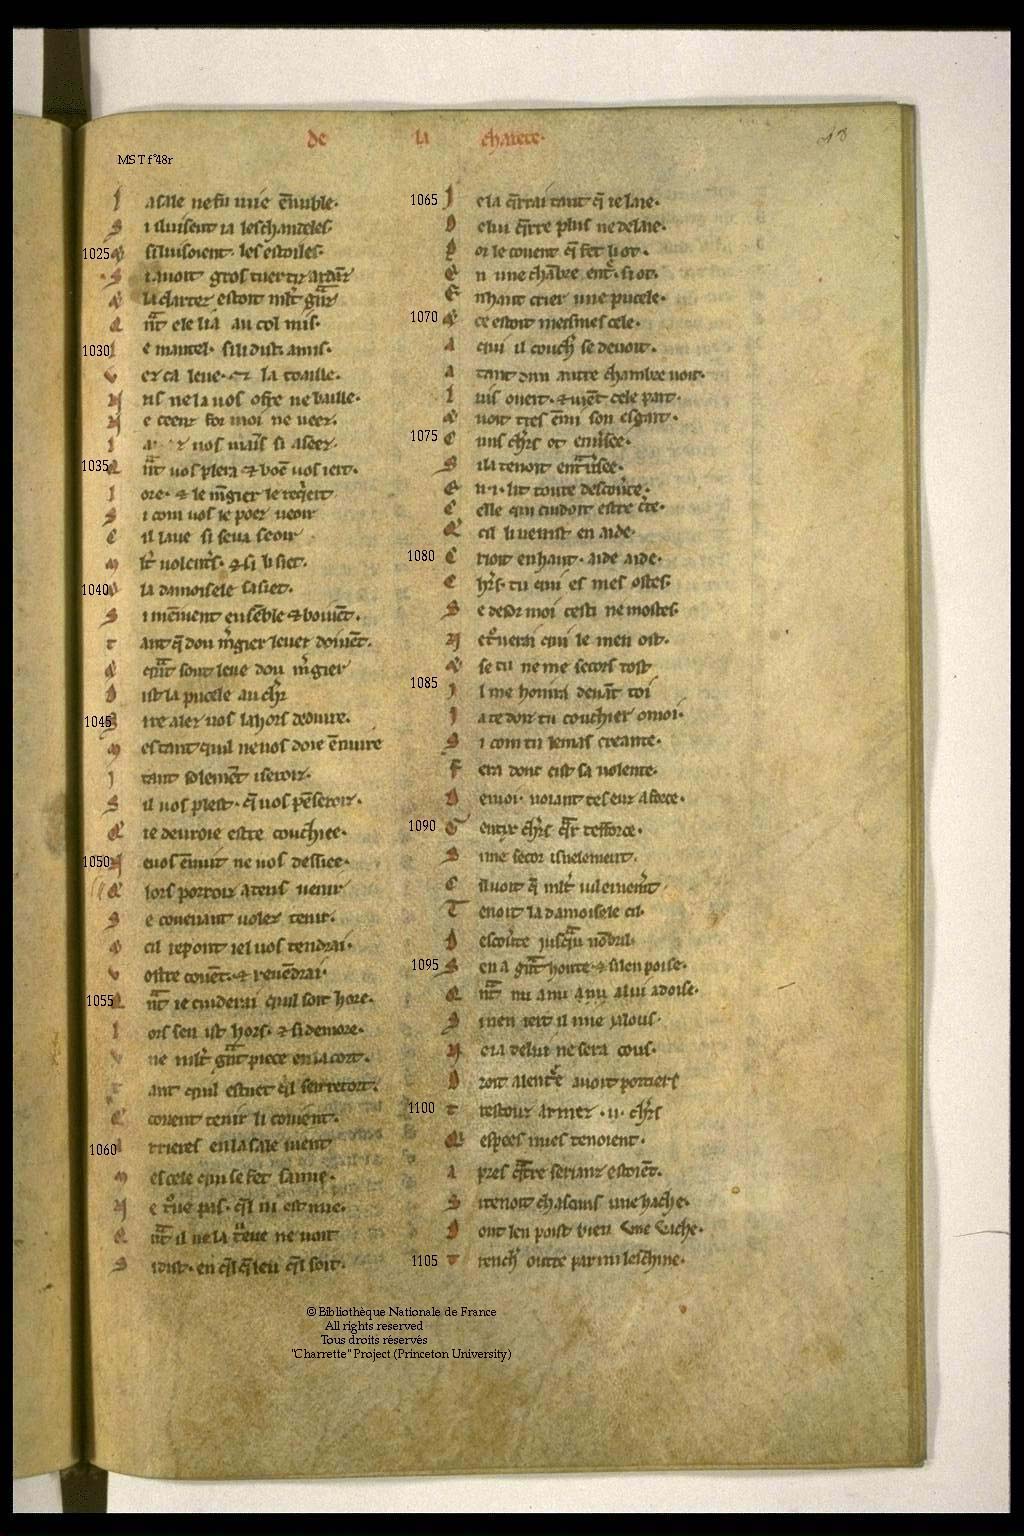 de la charete.
48
MS T f°48r
L a sale ne fu mie ẽnuble.
S i luisent ia les chandeles.
1025 Q si luisoient. les estoiles.
S i auoit gros tuertiz ardãz
Q la clartez estoit mlt
Q ñt ele li a au col mis.
1030 L e mantel. si li dist. amis.
V ez ca leue. et la toaille.
N us ne la uos ofre ne baille.
N e ceenz for moi ne ueez.
L uos mais si aseez.
1035 Q ñt uos plera et boẽ uos iert.
L ore. et le mẽgier le reqiert
S i com uos le poez ueoir
C il laue si seua seoir
M lt uolent's. et si li siet.
1040 Q la damoisele sasiet.
S i menient ensẽble et boiuẽt.
T ant q̃ dou mẽgier leuer doiuẽt.
Q quãt sont leue dou mẽgier
D ist la pucele au chr
1045 S ire alez uos la hors deduire.
M es tant quil ne uos doie ẽnuire
I tant solemẽt i seroiz.
S il uos plest. q̃ uos pẽseroiz.
Q ie deuroie estre couchiee.
1050 N euos ẽnuit ne uos dessiee.
Q lors porroiz a tens uenir
S e couenant uolez tenir.
Q cil repont iel uos tendrai.
V ostre couẽt. et reuẽdrai.
1055 Q ñt ie cuiderai quil soit hore.
L ors sen ist hors. et si demore.
V ne mlt grãt piece en la cort.
T ant quil estuet q̃l sen retort.
C couent tenir li conient.
1060 A rrieres en la sale uient
M es cele qui se fet samie.
N e true pas. q̃l ni est mie.
Q ñt il ne la treue ne uoit
S i dist. en q̃l q̃ leu q̃l soit.
1065 I e la q̃rrai tant q̃ ie laie.
D e lui q̃rre plus ne delaie.
P or le couent q̃ fet li ot.
E n une chãbre ent'. si ot.
E n haut crier une pucele.
1070 Q ce estoit meismes cele.
A qui il couch' se deuoit.
A tant dun autre chambre uoit.
L uis ouert. et uiẽt cele part.
Q uoit tres ẽmi son esgart.
1075 C uns chrs ot
S i la tenoit
E n .i. lit toute descou'te.
C elle qui cuidoit estre c'te.
Q cil li uenist en aide.
1080 C rioit en haut. aide aide.
C hrs. tu qui es mes ostes.
S e desor moi cestui ne mostes.
N e t'uerai qui le men ost.
Q se tu ne me secors tost
1085 I l me honira deuãt toi
I a te doiz tu couchier o moi.
S i com tu lemas creante.
F era donc cist sa uolente.
D e moi. uoiant tes euz a force.
1090 G entix chrs q̃r tefforce.
S i me secor isnelement.
C il uoit q̃ mlt uilenemẽt
T enoit la damoisele cil.
D escou'te iusqu
1095 S en a grãt honte. et si len poise.
Q ñt nu a nu a lui adoise.
S i nen iert il mie ialous.
N e ia de lui ne sera cous.
D auoit portiers
1100 T restouz armez .ii. chrs
Q espees nues tenoient.
A pres q̃tre serianz estoiẽt.
S i tenoit chascuns une hache.
D ont len poist bien une uache.
1105 T rench' outre parmi leschine.
© Bibliothèque Nationale de France
All rights reserved
Tous droits réservés
"Charrette" Project (Princeton University)